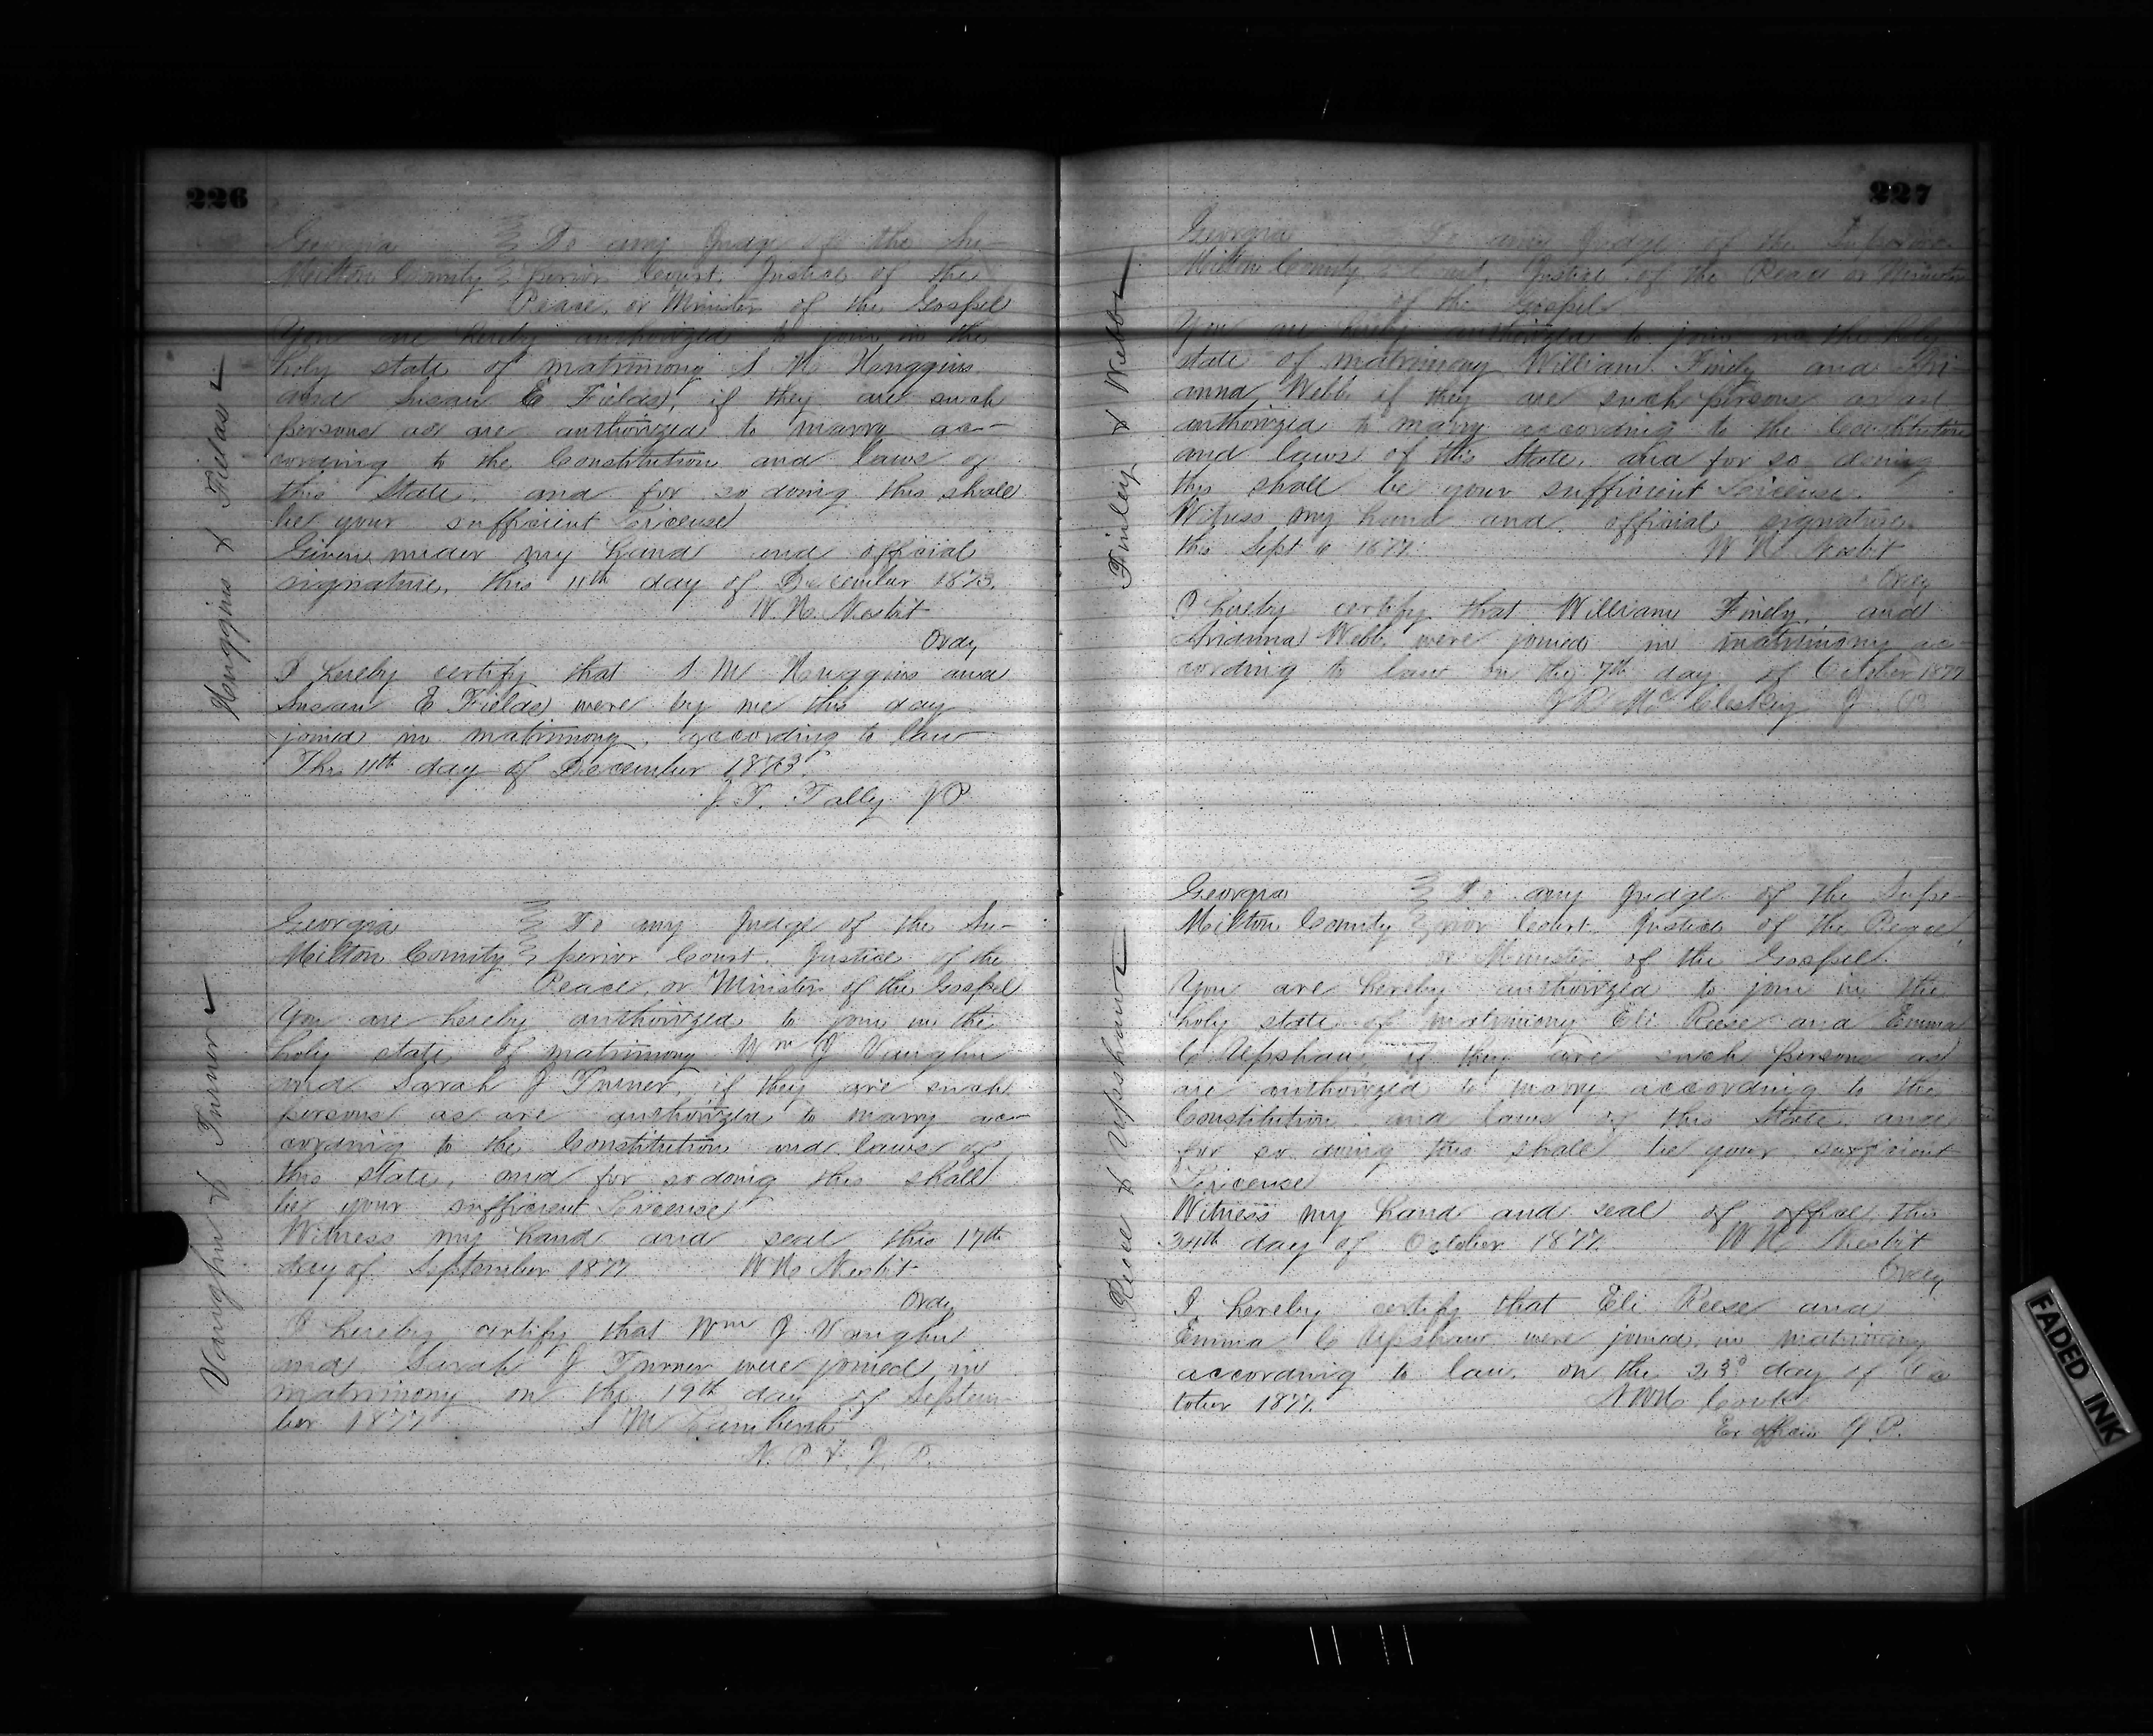 226
Huggins & Fields
Georgia To any Judge of the Su-
Milton County perior Court, Justice of the
Peace, or Minister of the Gospel
You are hereby authorized to join in the
holy state of matrimony S M Huggins
and Susan E Fields, if they are such
persons as are authorized to marry ac-
cording to the Constitution and laws of
this State, and for so doing this shall
be your sufficient License
Given under my hand and official
signature, this 11th day of December 1873.
W. N. Nesbit
Ordy
I hereby certify that S M Huggins and
Susan E Fields were by me this day
joined in matrimony, according to law
This 11th day of December 1873.
J. T. Tally JP
Vaughn & Turner
Georgia To any Judge of the Su-
Milton County perior Court, Justice of the
Peace, or Minister of the Gospel
You are hereby authorized to join in the
holy state of matrimony Wm J Vaughn
and Sarah J Turner, if they are such
persons as are authorized to marry ac-
cording to the Constitution and laws of
this state, and for so doing this shall
be your sufficient License
Witness my hand and seal this 17th
day of September 1877 W N Nesbit
Ordy
I hereby certify that Wm J Vaughn
and Sarah J Turner were joined in
matrimony on the 19th day of Septem-
ber 1877 S M
N. P. & J. P.
227
Finley & Webb
Georgia To any Judge of the Superior
Milton County Court, Justice of the Peace or Minister
of the Gospel
You are hereby authorized to join in the holy
state of matrimony William Finely and Ari-
anna Webb if they are such persons as are
authorized to marry according to the Constitution
and laws of this State, and for so doing
this shall be your sufficient License.
Witness my hand and official signature
this Sept 6 1877 W N Nesbit
Ordy
I hereby certify that William Finely, and
Arianna Webb, were joined in matrimony ac-
cording to law on the 7th day of October 1877
J R McCleskey J. P.
Reese & Upshaw
Georgia To any Judge of the Supe-
Milton County rior Court, Justice of the Peace,
or Minister of the Gospel.
You are hereby authorized to join in the
holy state of matrimony Eli Reese and Emma
C Upshaw, if they are such persons as
are authorized to marry according to the
Constitution and laws of this State, and
for so doing this shall be your sufficient
License
Witness my hand and seal of office, this
24th day of October 1877. W N Nesbit
Ordy
I hereby certify that Eli Reese and
Emma C Upshaw were joined in matrimony
according to law, on the 23d day of Oc
tober 1877. Cook
Ex officio J. P.
FADED INK